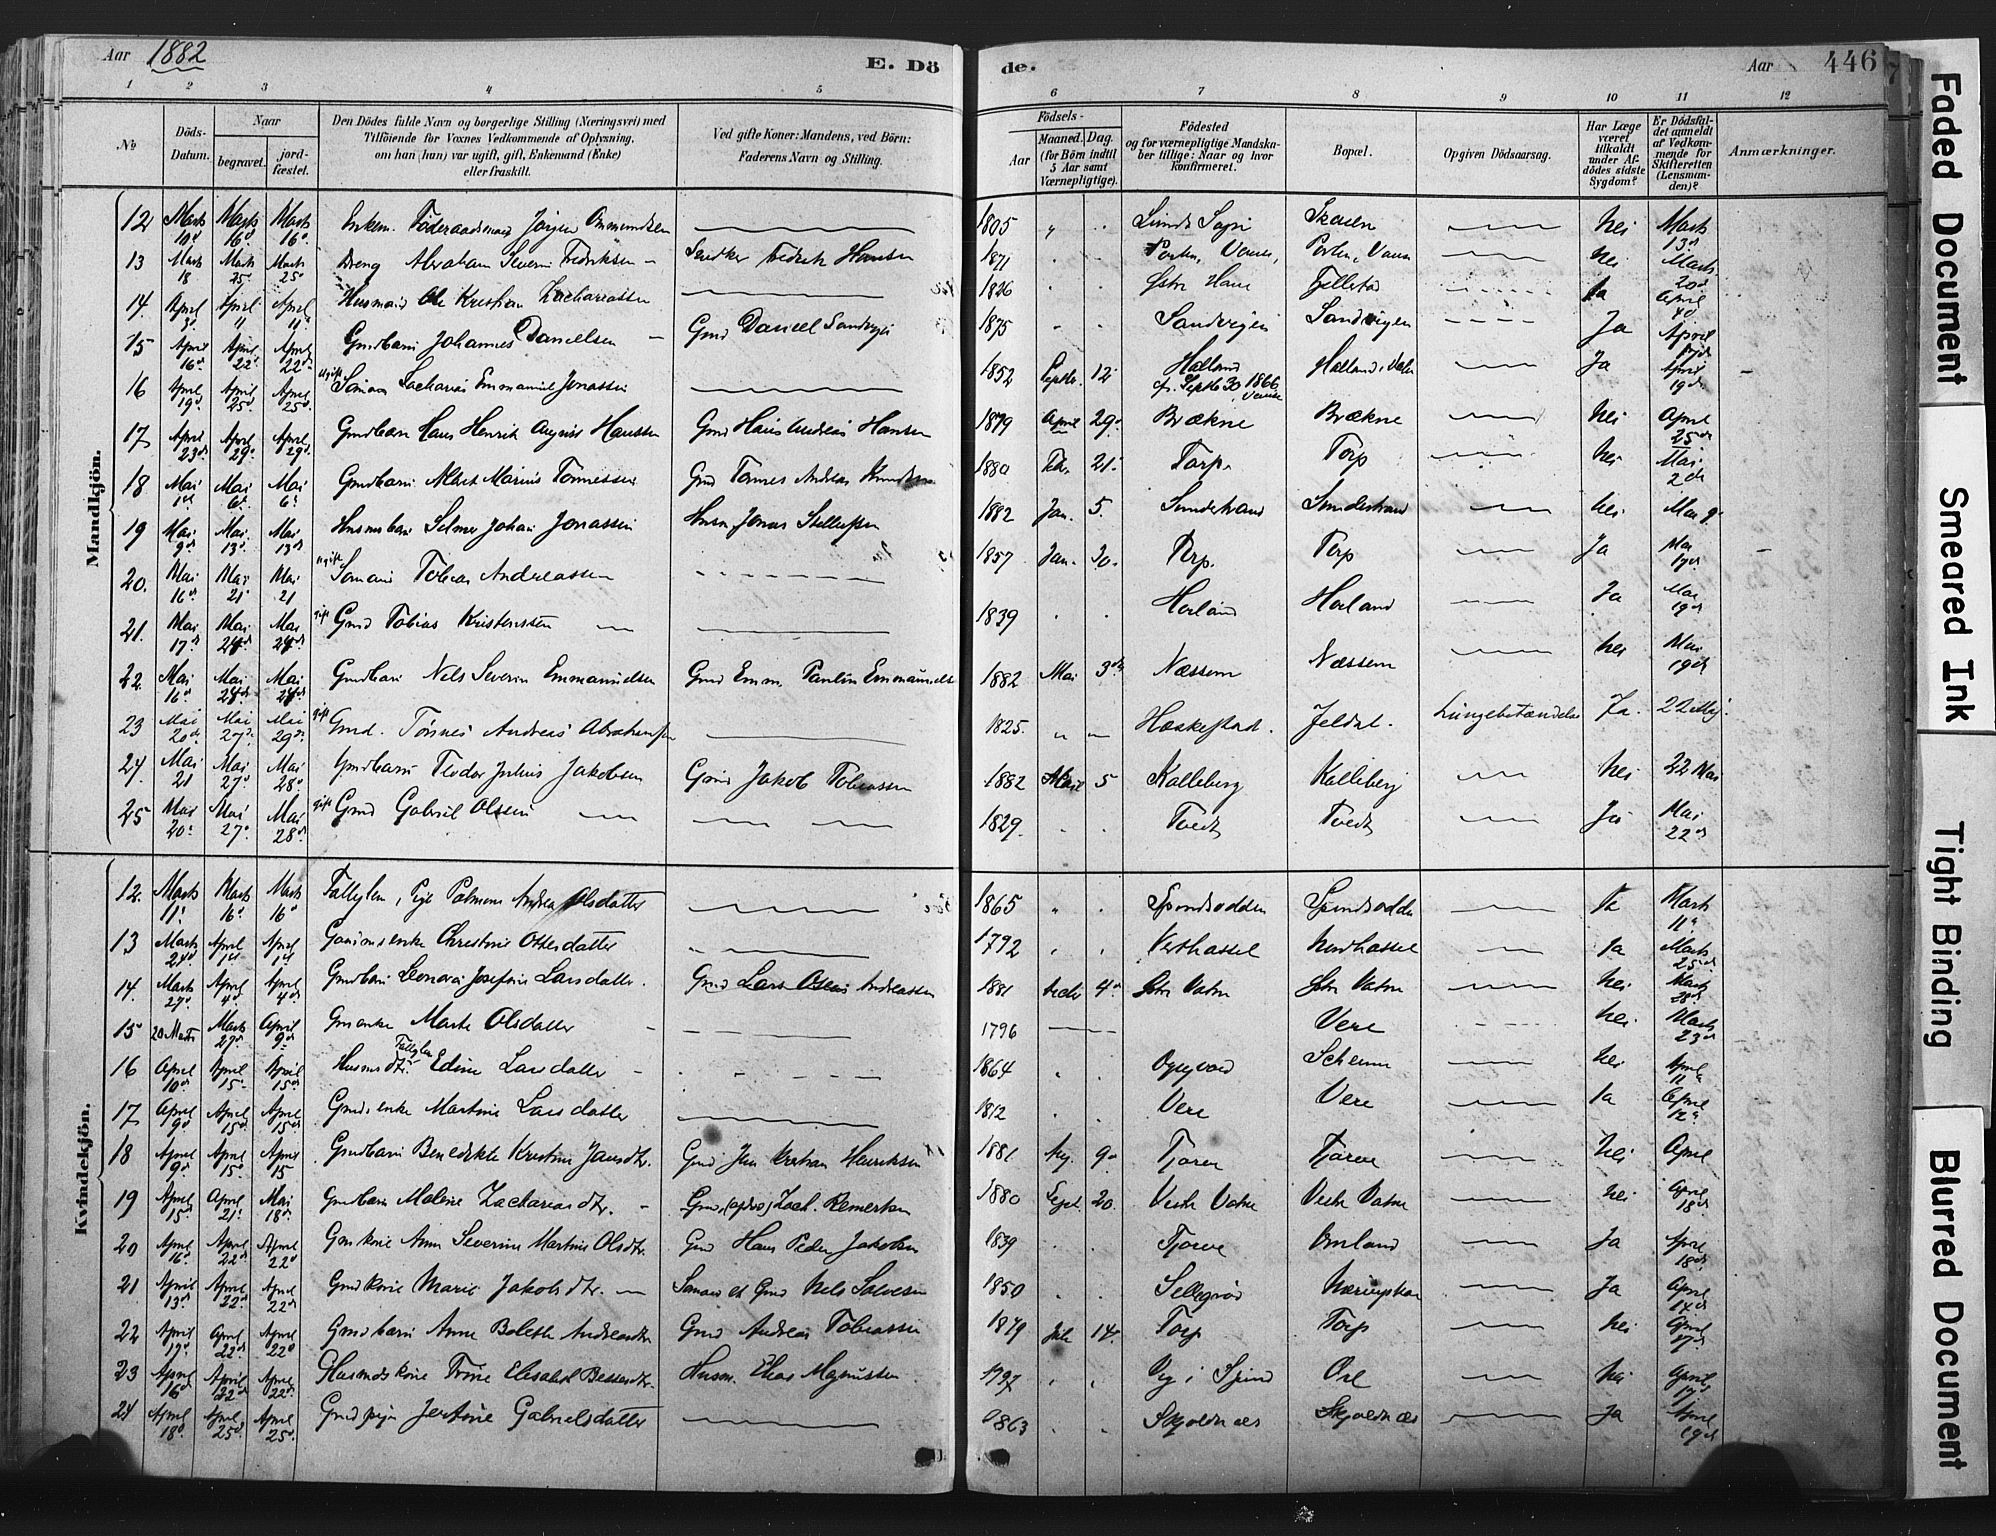 Aar 1882 E. Dö
de. Aar 446
1 2 3 4 5
6 7 8 9 10 11 12
No
Döds-Datum.
Naar
begravet.
jord-fæstet.
Den Dödes fulde Navn og borgerlige Stilling (Næringsvei) med
Tilföiende for Voxnes Vedkommende af Oplysning,
om han (hun) var ugift, gift, Enkemand (Enke)
eller fraskilt.
Ved gifte Koner: Mandens, ved Börn:
Faderens Navn og Stilling.
Födsels-
Aar
Maaned. Dag.
(for Börn indtil
5 Aar samt
Værnepligtige).
Födested
og for værnepligtige Mandska-
ber tillige: Naar og hvor
konfirmeret.
Bopæl.
Opgiven Dödsaarsag.
Har Læge
været
tilkaldt
under Af-
dödes sidste
Sygdom?
Er Dödsfal-
det anmeldt
af Vedkom-
mende for
Skifteretten
(Lensman-
den)?
Anmærkninger.
Mandkjön.
12 Marts 10d Marts 16d Marts 16d Enkem. Föderaadsmand Jörgen Ommundsen 1805 Lunds Sogn Skaren nei Marts 13d
13 Marts 18 Marts 25 Marts 25 Dreng Abraham Severin Fredriksen Fredrik Hansen 1871 Vanse nei Marts 20d
14 April 3d April 11 April 11 Husmand Ole Kristian Zachariassen 1826 Östre Hauge Fjellestad Ja April 4d
15 April 16d April 22 April 22d Gmdbarn Johannes Danielsen Gmd Daniel Sandvigen 1875 Sandvigen Sandvigen Ja April
16 April 19d April 25d April 25d ugift Sömand Zacharias Emmanuel Jonassen 1852 Septbr. 12 Hölland cf. Septb 30 1866 Vanse Ja April 19d
17 April 23d April 29d April 29d Gmdbarn Hans Henrik August Hansen Gmd Hans Andreas Hansen 1879 April 29 Brækne Brækne nei April 25d
18 Mai 1st Mai 6d Mai 6d Gmdbarn Albert Marius Tönnessen Gmd Tönnes Andreas Knudsen 1880 Feb. 21 Torp Torp nei Mai 2d
19 Mai 9d Mai 13d Mai 13d Husmbarn Selmer Johan Jonassen Husm Jonas 1882 Jan. 5 Sundstrand nei Mai 9
20. Mai 16d Mai 21 Mai 21 ugift Sömand Tobias Andreassen 1857 Jan. 30. Torp Torp Ja Mai 17d
21. Mai 17d Mai 24d Mai 24d gift Gmd Tobias Kristensen 1839 Hörland Hörland Ja Mai 19d
22. Mai 16d Mai 24d Mai 24d Gmdbarn Nels Severin Emmanuelsen Gmd Emm. Paulin Emmanuels 1882 Mai 3d Næssem Næssem nei Mai 19d
23 Mai 20d Mai 27d Mai 29d gift Gmd. Tönnes Andreas Abrahamsen 1825. Hæskestad. Jeldal. Lungebetændelse Ja. 22 Mai.
24. Mai 21 Mai 27d Mai 28d Gmdbarn Teodor Julius Jakobsen Gmd Jakob Tobiassen 1882 5 Kalleberg Kalleberg nei 22 Mai
25 Mai 20d Mai 27d Mai 28d gift Gmd Gabriel Olsen 1829. Tvedt Tvedt Ja Mai 22d
Kvindekjön.
12. Marts 11d Marts 16d Marts 16d Fattiglem, Pige Andrea Olsdatter 1865 Spindsodden Spindsodden Ja Marts 11d
13 Marts 24d April 1st April 1st Christine Olsdatter 1792 Vesthassel Nordhassel Ja Marts 25d
14. Marts 27d April 4d April 4d Gmdbarn Leonora Josefine Larsdatter. Gmd Lars Andreassen 1881 4d Östre Vatne Östre Vatne nei Marts 28d
15 20 Marts Marts 29d April 9d Gmenke Marte Olsdatter 1796 Vere nei Marts 23d
16 April 10d April 15d April 15d Husmdtr. Fattiglem Edine Larsdatter 1864 nei April 11d
17 April 9d April 15d April 15d Gmdsenke Martine Larsdatter 1812 Vere Vere Ja April 12d
18 April 9d April 15d April 15 Gmdbarn Benedikte Kristine Jensdtr. Gmd Jens Kristian Henriksen 1881 Aug. 9d Tjørve Tjørve nei April
19 April 15d April 21d Mai 18d Gmdbarn Malene Zachariasdtr. Gmd. Zach. Reinertsen 1880 Sept. 20. Vestre Vatne Vestre Vatne nei April 18d
20 April 16d April 22d April 22d Gmkone Anne Severine Martine Olsdtr. Gmd Hans Peder Jakobsen 1839 Tjørve Omland Ja April 18d
21 April 13d April 22d April 22d Gmdkone Marie Jakobsdtr. Sömand og Gmd Nels Salvesen 1850 Sellegrod Ja April 14d
22 April 17d April 22d April 22d Gmdbarn Anne Bolette Andreasdtr Gmd Andreas Tobiassen 1879 Juli 14. Torp Torp nei April 17d
23 April 16d April 22d April 22d Husmdskone Trine Elisabet Husm. Elias Magnussen 1797 i Spind Ore nei April 17d
24 April 18d April 25d April 25d Gmd pige Jertine Gabrielsdatter 1863 Skjoldnæs Skjoldnæs Ja April 19d
Faded Document
Smeared Ink
Tight Binding
Blurred Document